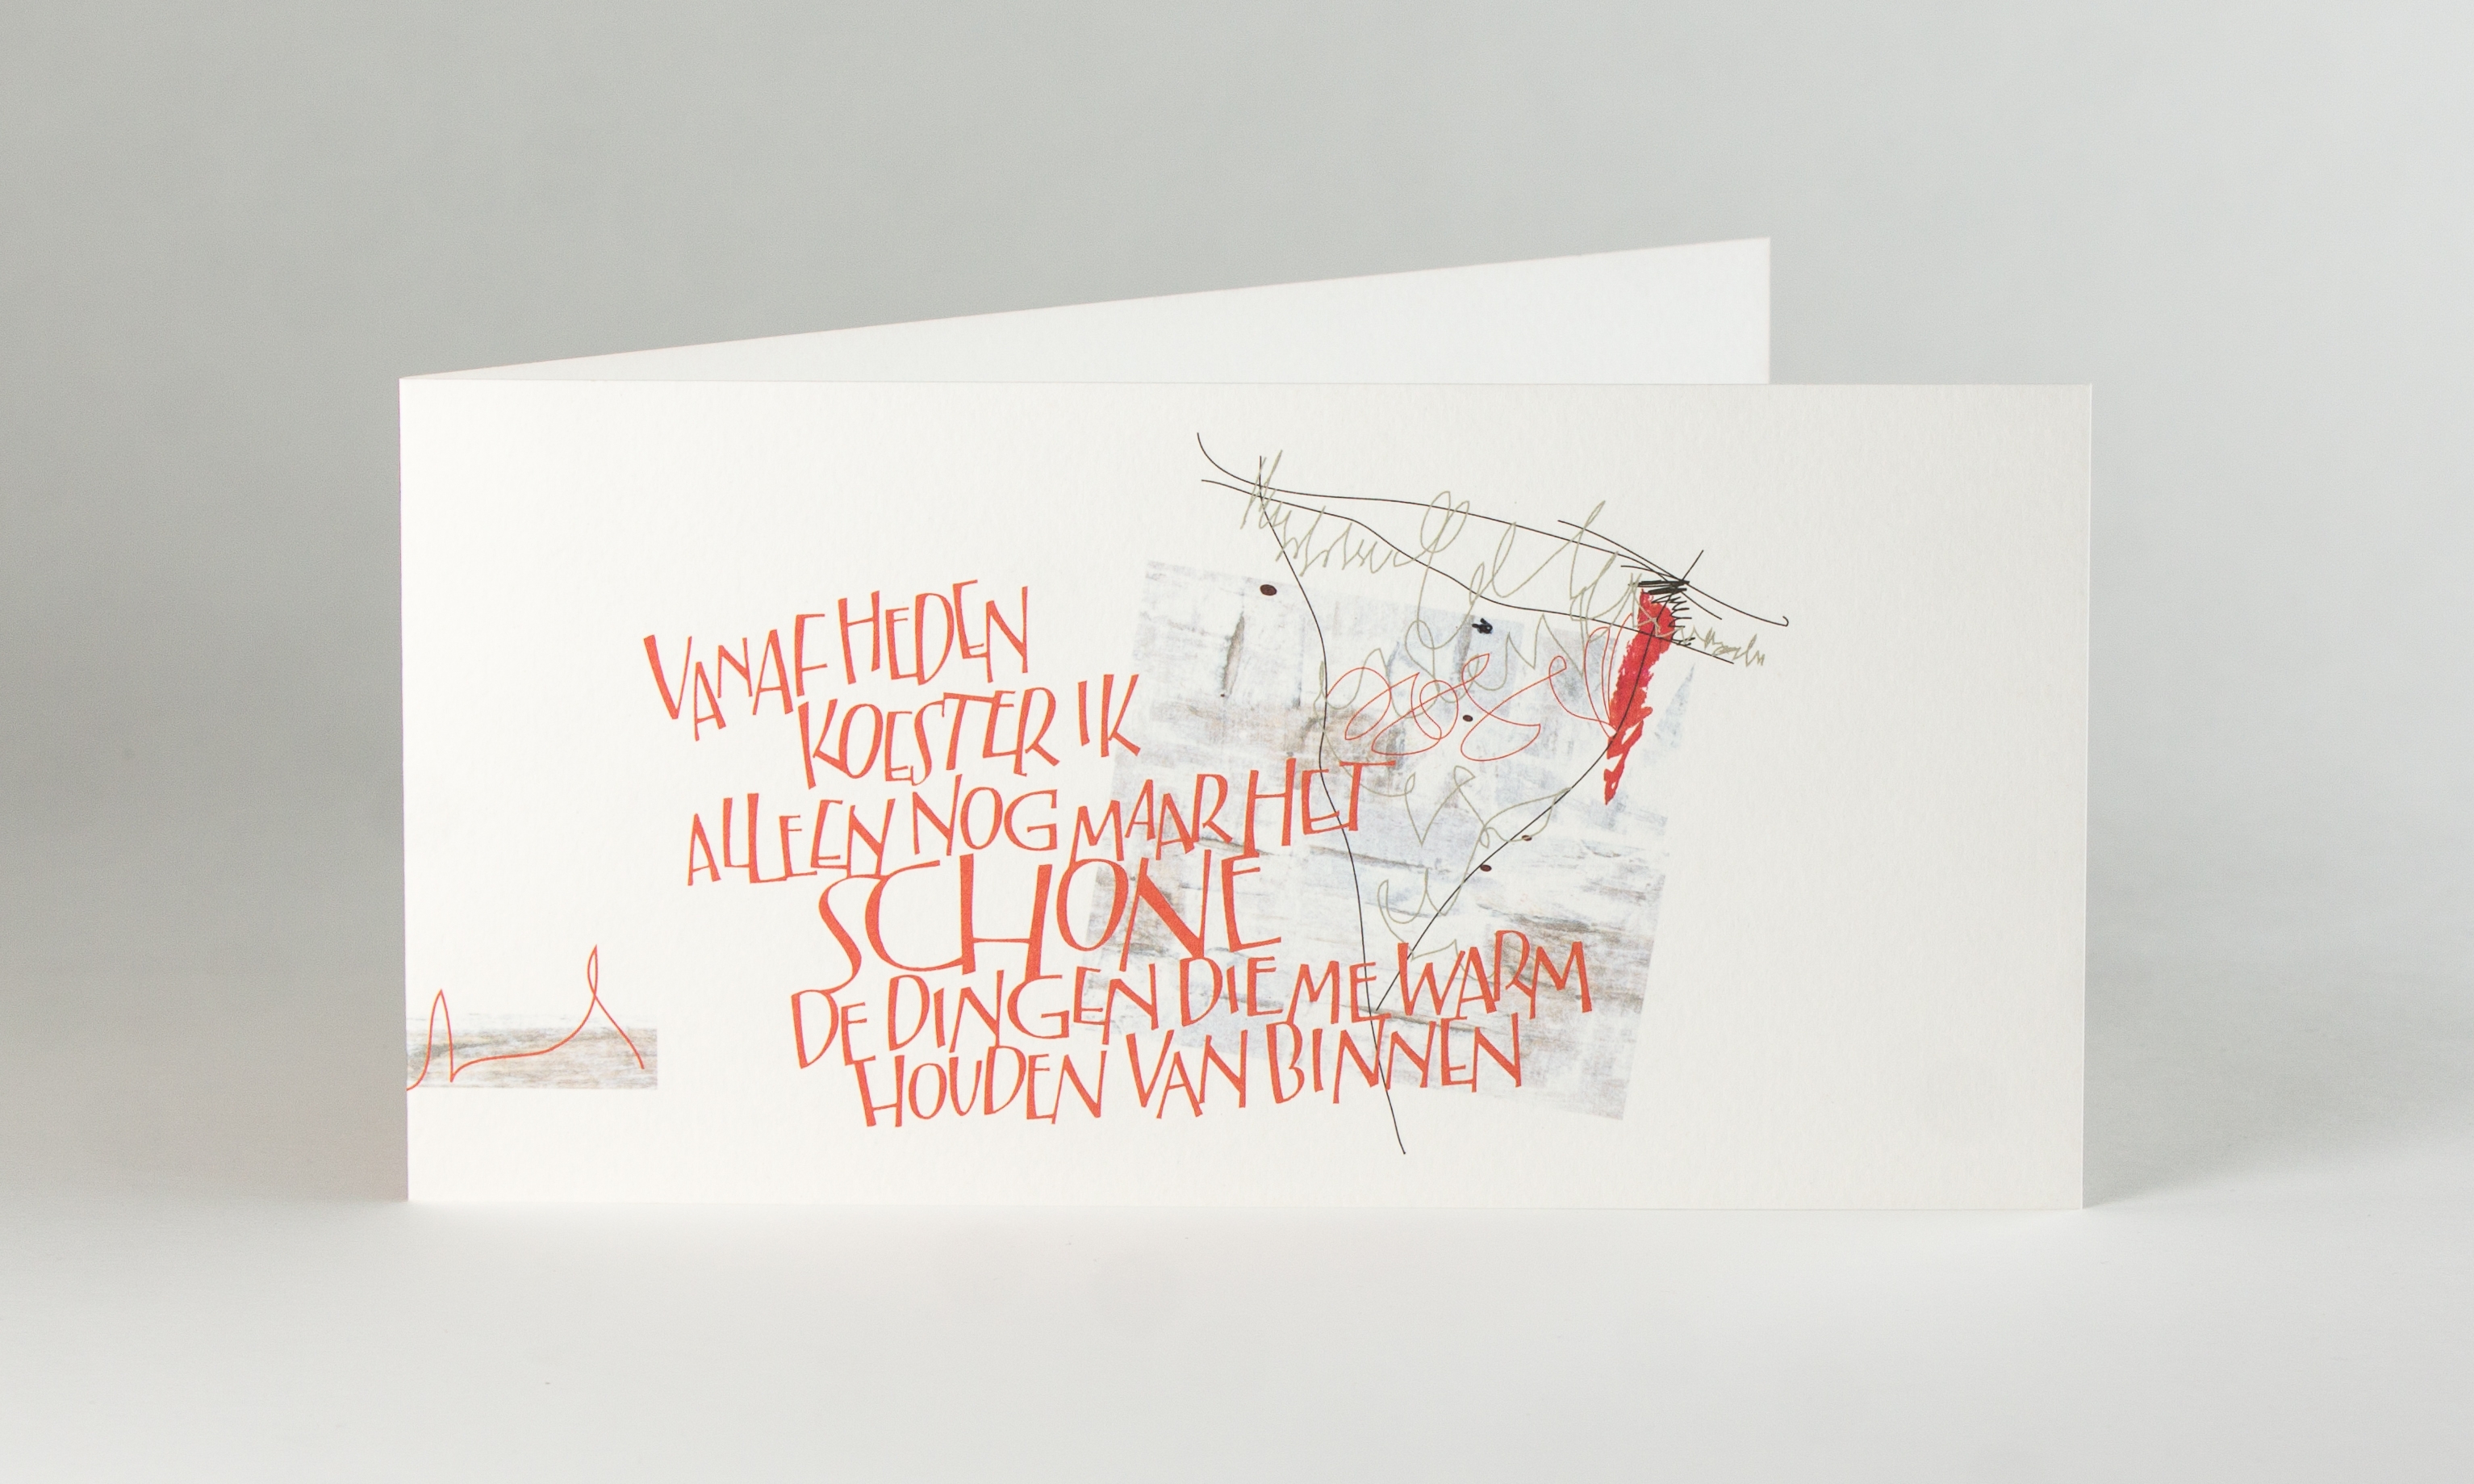 VANAF HEDEN
KOESTER IK
ALLEEN NOG MAAR HET
SCHONE
DE DINGEN DIE ME WARM
HOUDEN VAN BINNEN